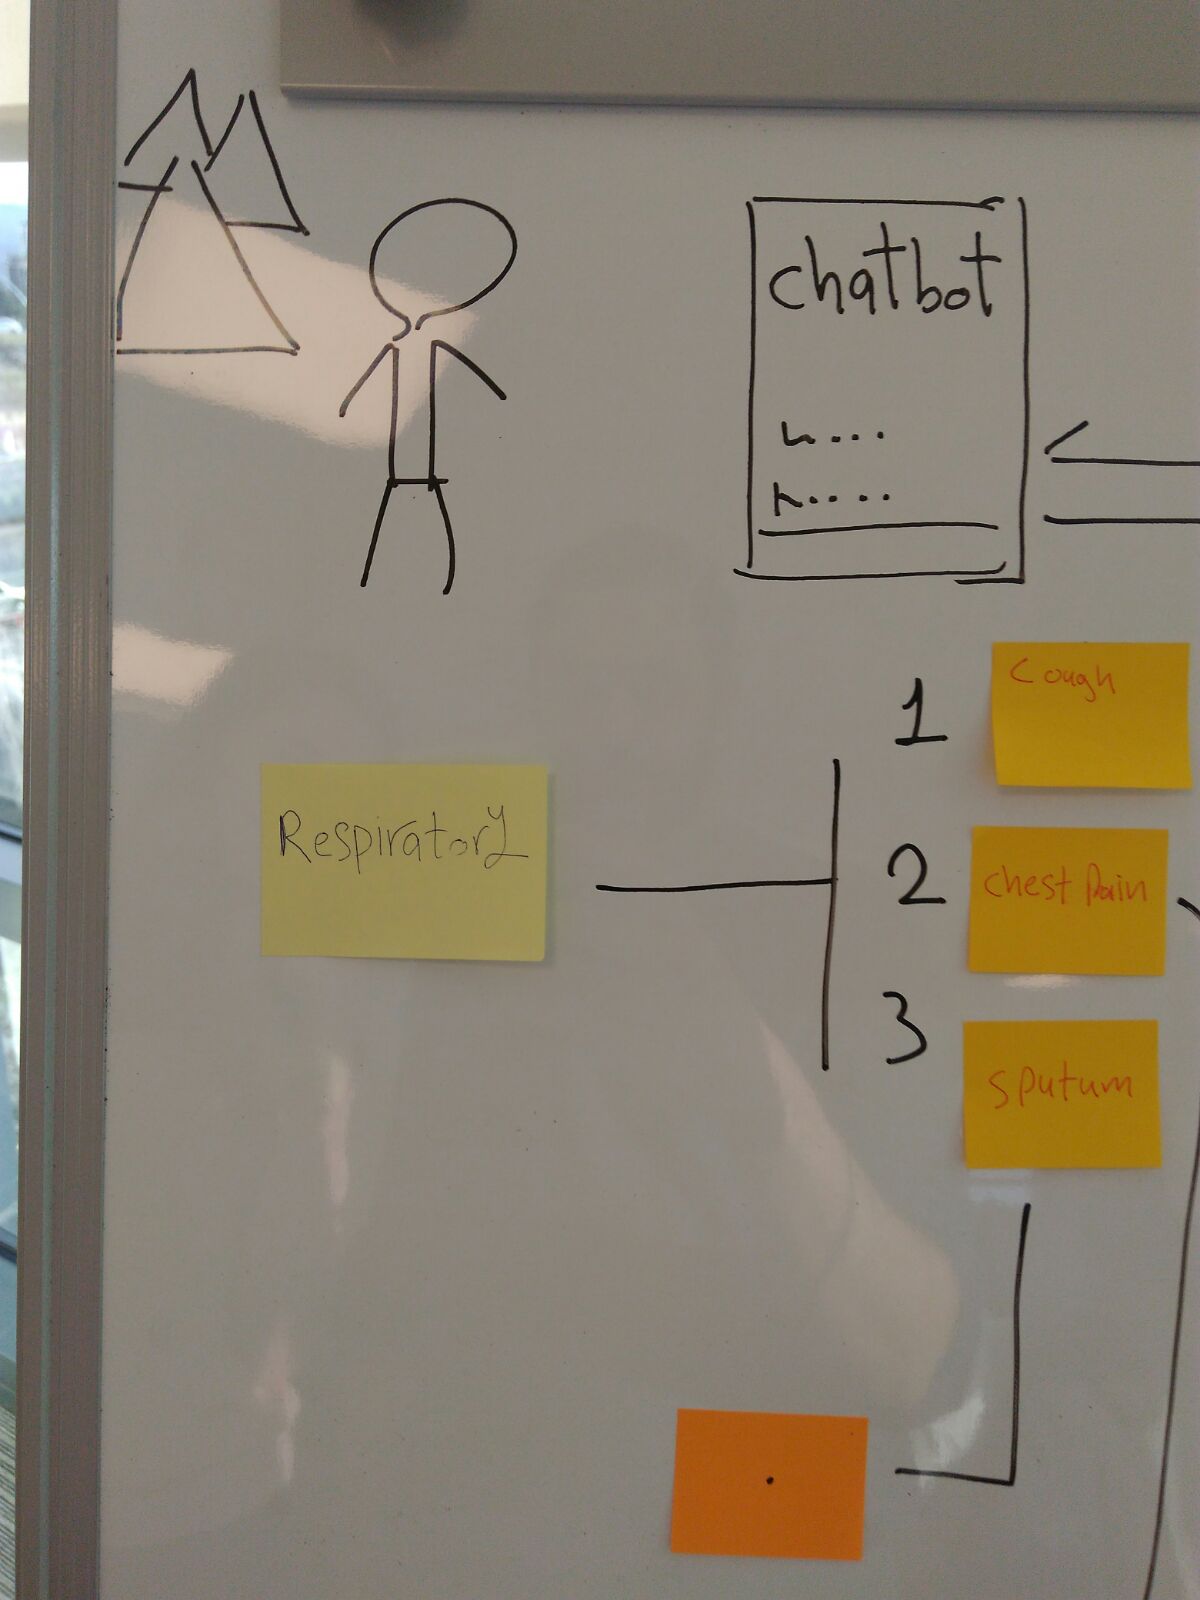 chatbot
Respiratory
1
Cough
2
chest Pain
3
sputum